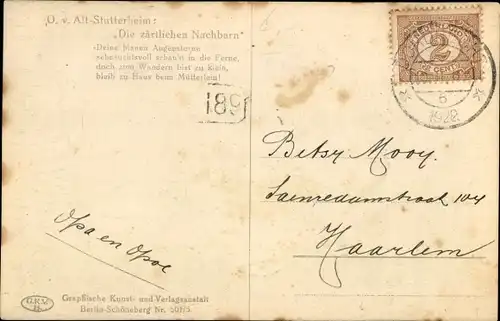 O. v. Alt-Stutterheim:
„Die zärtlichen Nachbarn"
Deine blauen Augensterne
sehnsuchtsvoll schau'n in die Ferne,
doch zum Wandern bist zu klein,
bleib zu Haus beim Mütterlein!
189
2
6
1922
Betsy Mooy.
Saenredamstraat 104
Haarlem
Opa en Opoe
G.K.V.
B.
Graphische Kunst- und Verlagsanstalt
Berlin-Schöneberg Nr. 501/3